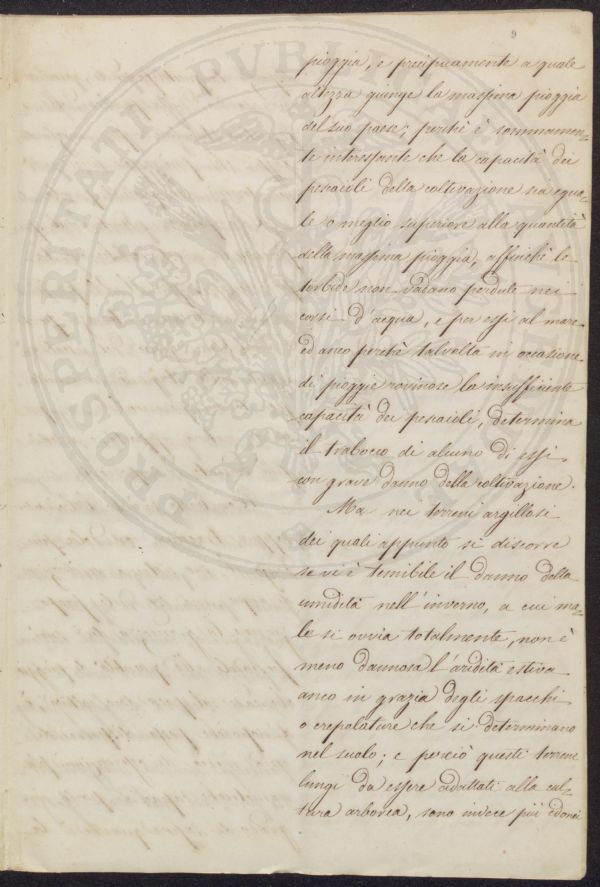 9
pioggia, e precipuamente a quale
altezza giunge la massima pioggia
del suo paese; perchè è sommamen=
te interessante che la capacità dei
pescaioli della coltivazione sia egua=
le o meglio superiore alla quantità
della massima pioggia, affinchè le
torbide non vadano perdute nei
corsi d'acqua, e per essi al mare
ed anco perchè talvolta in occasione
di pioggie rovinose la insufficiente
capacità dei pescaioli, determina
il traboco di alcuno di essi
con grave danno della coltivazione.
Ma nei terreni argillosi
dei quali appunto si discorre
se vi è temibile il danno della
umidità nell'inverno, a cui ma=
le si ovvia totalmente, non è
meno dannosa l'aridità estiva
anco in grazia degli spacchi
o crepolature che si determinano
nel suolo; e perciò questi terreni
lungi da essere adattati alla cul=
tura arborea, sono invece più idonei